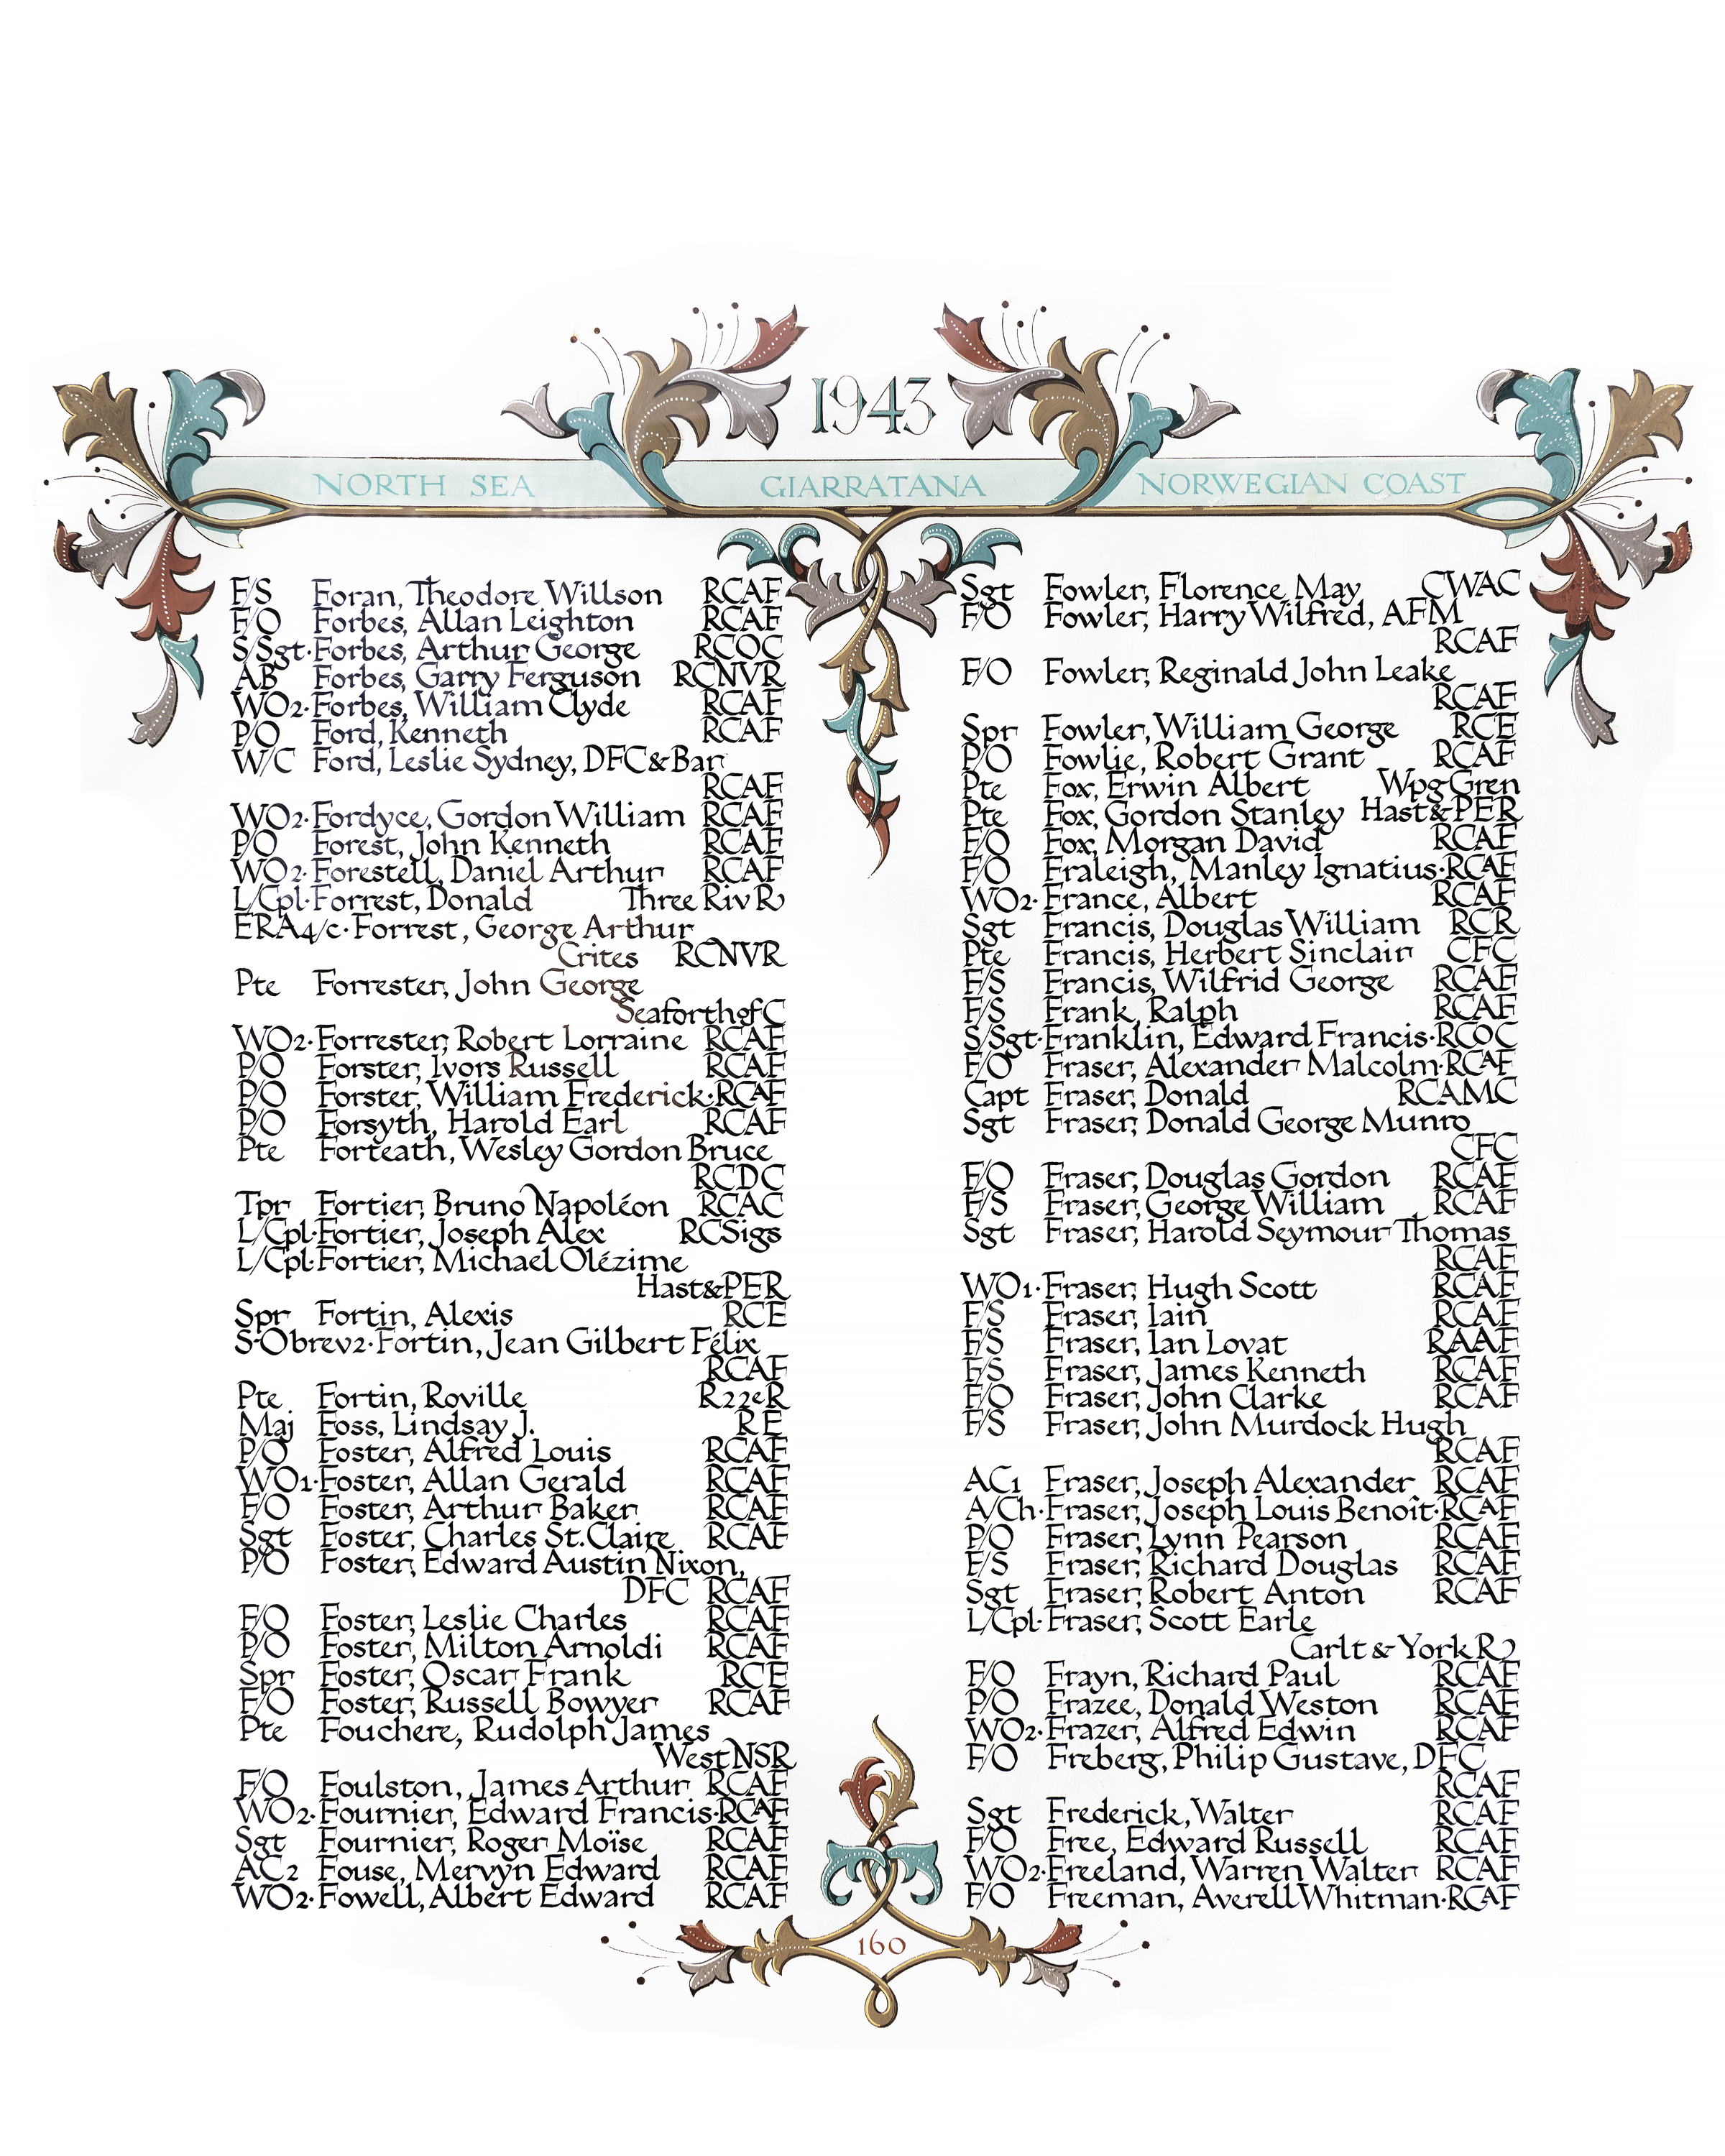 1943
NORTH SEA GIARRATANA NORWEGIAN COAST
F/S Foran, Theodore Willson RCAF
F/O Forbes, Allan Leighton RCAF
S/Sgt·Forbes, Arthur George RCOC
AB Forbes, Garry Ferguson RCNVR
WO2·Forbes, William Clyde RCAF
P/O Ford, Kenneth RCAF
W/C Ford, Leslie Sydney, DFC & Bar
RCAF
WO2·Fordyce, Gordon William RCAF
P/O Forest, John Kenneth RCAF
WO2·Forestell, Daniel Arthur RCAF
L/Cpl·Forrest, Donald Three Riv R
ERA4/c·Forrest, George Arthur
Crites RCNVR
Pte Forrester, John George
Seaforth of C
WO2·Forrester, Robert Lorraine RCAF
P/O Forster, Ivors Russell RCAF
P/O Forster, William Frederick·RCAF
P/O Forsyth, Harold Earl RCAF
Pte Forteath, Wesley Gordon Bruce
RCDC
Tpr Fortier, Bruno Napoléon RCAC
L/Cpl·Fortier, Joseph Alex RCSigs
L/Cpl·Fortier, Michael Olézime
Hast & PER
Spr Fortin, Alexis RCE
S-Obrev2·Fortin, Jean Gilbert Félix
RCAF
Pte Fortin, Roville R22eR
Maj Foss, Lindsay J. RE
P/O Foster, Alfred Louis RCAF
WO1·Foster, Allan Gerald RCAF
F/O Foster, Arthur Baker RCAF
Sgt Foster, Charles St.Claire RCAF
P/O Foster, Edward Austin Nixon,
DFC RCAF
F/O Foster, Leslie Charles RCAF
P/O Foster, Milton Arnoldi RCAF
Spr Foster, Oscar Frank RCE
F/O Foster, Russell Bowyer RCAF
Pte Fouchere, Rudolph James
West NSR
F/O Foulston, James Arthur RCAF
WO2·Fournier, Edward Francis·RCAF
Sgt Fournier, Roger Moïse RCAF
AC2 Fouse, Mervyn Edward RCAF
WO2·Fowell, Albert Edward RCAF
Sgt Fowler, Florence May CWAC
F/O Fowler, Harry Wilfred, AFM
RCAF
F/O Fowler, Reginald John Leake
RCAF
Spr Fowler, William George RCE
P/O Fowlie, Robert Grant RCAF
Pte Fox, Erwin Albert Wpg Gren
Pte Fox, Gordon Stanley Hast & PER
F/O Fox, Morgan David RCAF
F/O Fraleigh, Manley Ignatius·RCAF
WO2·France, Albert RCAF
Sgt Francis, Douglas William RCR
Pte Francis, Herbert Sinclair CFC
F/S Francis, Wilfrid George RCAF
F/S Frank, Ralph RCAF
S/Sgt·Franklin, Edward Francis·RCOC
F/O Fraser, Alexander Malcolm·RCAF
Capt Fraser, Donald RCAMC
Sgt Fraser, Donald George Munro
CFC
F/O Fraser, Douglas Gordon RCAF
F/S Fraser, George William RCAF
Sgt Fraser, Harold Seymour Thomas
RCAF
WO1·Fraser, Hugh Scott RCAF
F/S Fraser, Iain RCAF
F/S Fraser, Ian Lovat RAAF
F/S Fraser, James Kenneth RCAF
F/O Fraser, John Clarke RCAF
F/S Fraser, John Murdock Hugh
RCAF
AC1 Fraser, Joseph Alexander RCAF
A/Ch·Fraser, Joseph Louis Benoît·RCAF
P/O Fraser, Lynn Pearson RCAF
F/S Fraser, Richard Douglas RCAF
Sgt Fraser, Robert Anton RCAF
L/Cpl·Fraser, Scott Earle
Carlt & York R
F/O Frayn, Richard Paul RCAF
P/O Frazee, Donald Weston RCAF
WO2·Frazer, Alfred Edwin RCAF
F/O Freberg, Philip Gustave, DFC
RCAF
Sgt Frederick, Walter RCAF
F/O Free, Edward Russell RCAF
WO2·Freeland, Warren Walter RCAF
F/O Freeman, Averell Whitman·RCAF
160